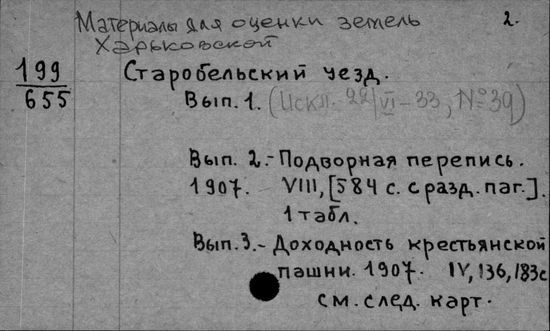 Материалы для оценки земель 2.
Харьковской
199
655
Старобельский уезд.
Вып. 1. (Искл. 22/VI-33, №39)
Вып. 2.- Подворная перепись.
1907. VIII, [584 с. с разд. паг.].
1 табл.
Вып. 3.- Доходность крестьянской
пашни. 1907. IV, 136, 183с
см. след. карт.